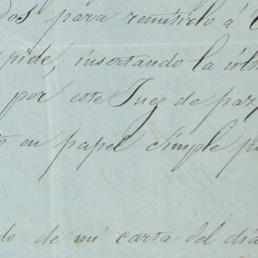 para remitirlo á
pide, insertando la
por este Juez de paz
en papel simple
de mi carta del dia